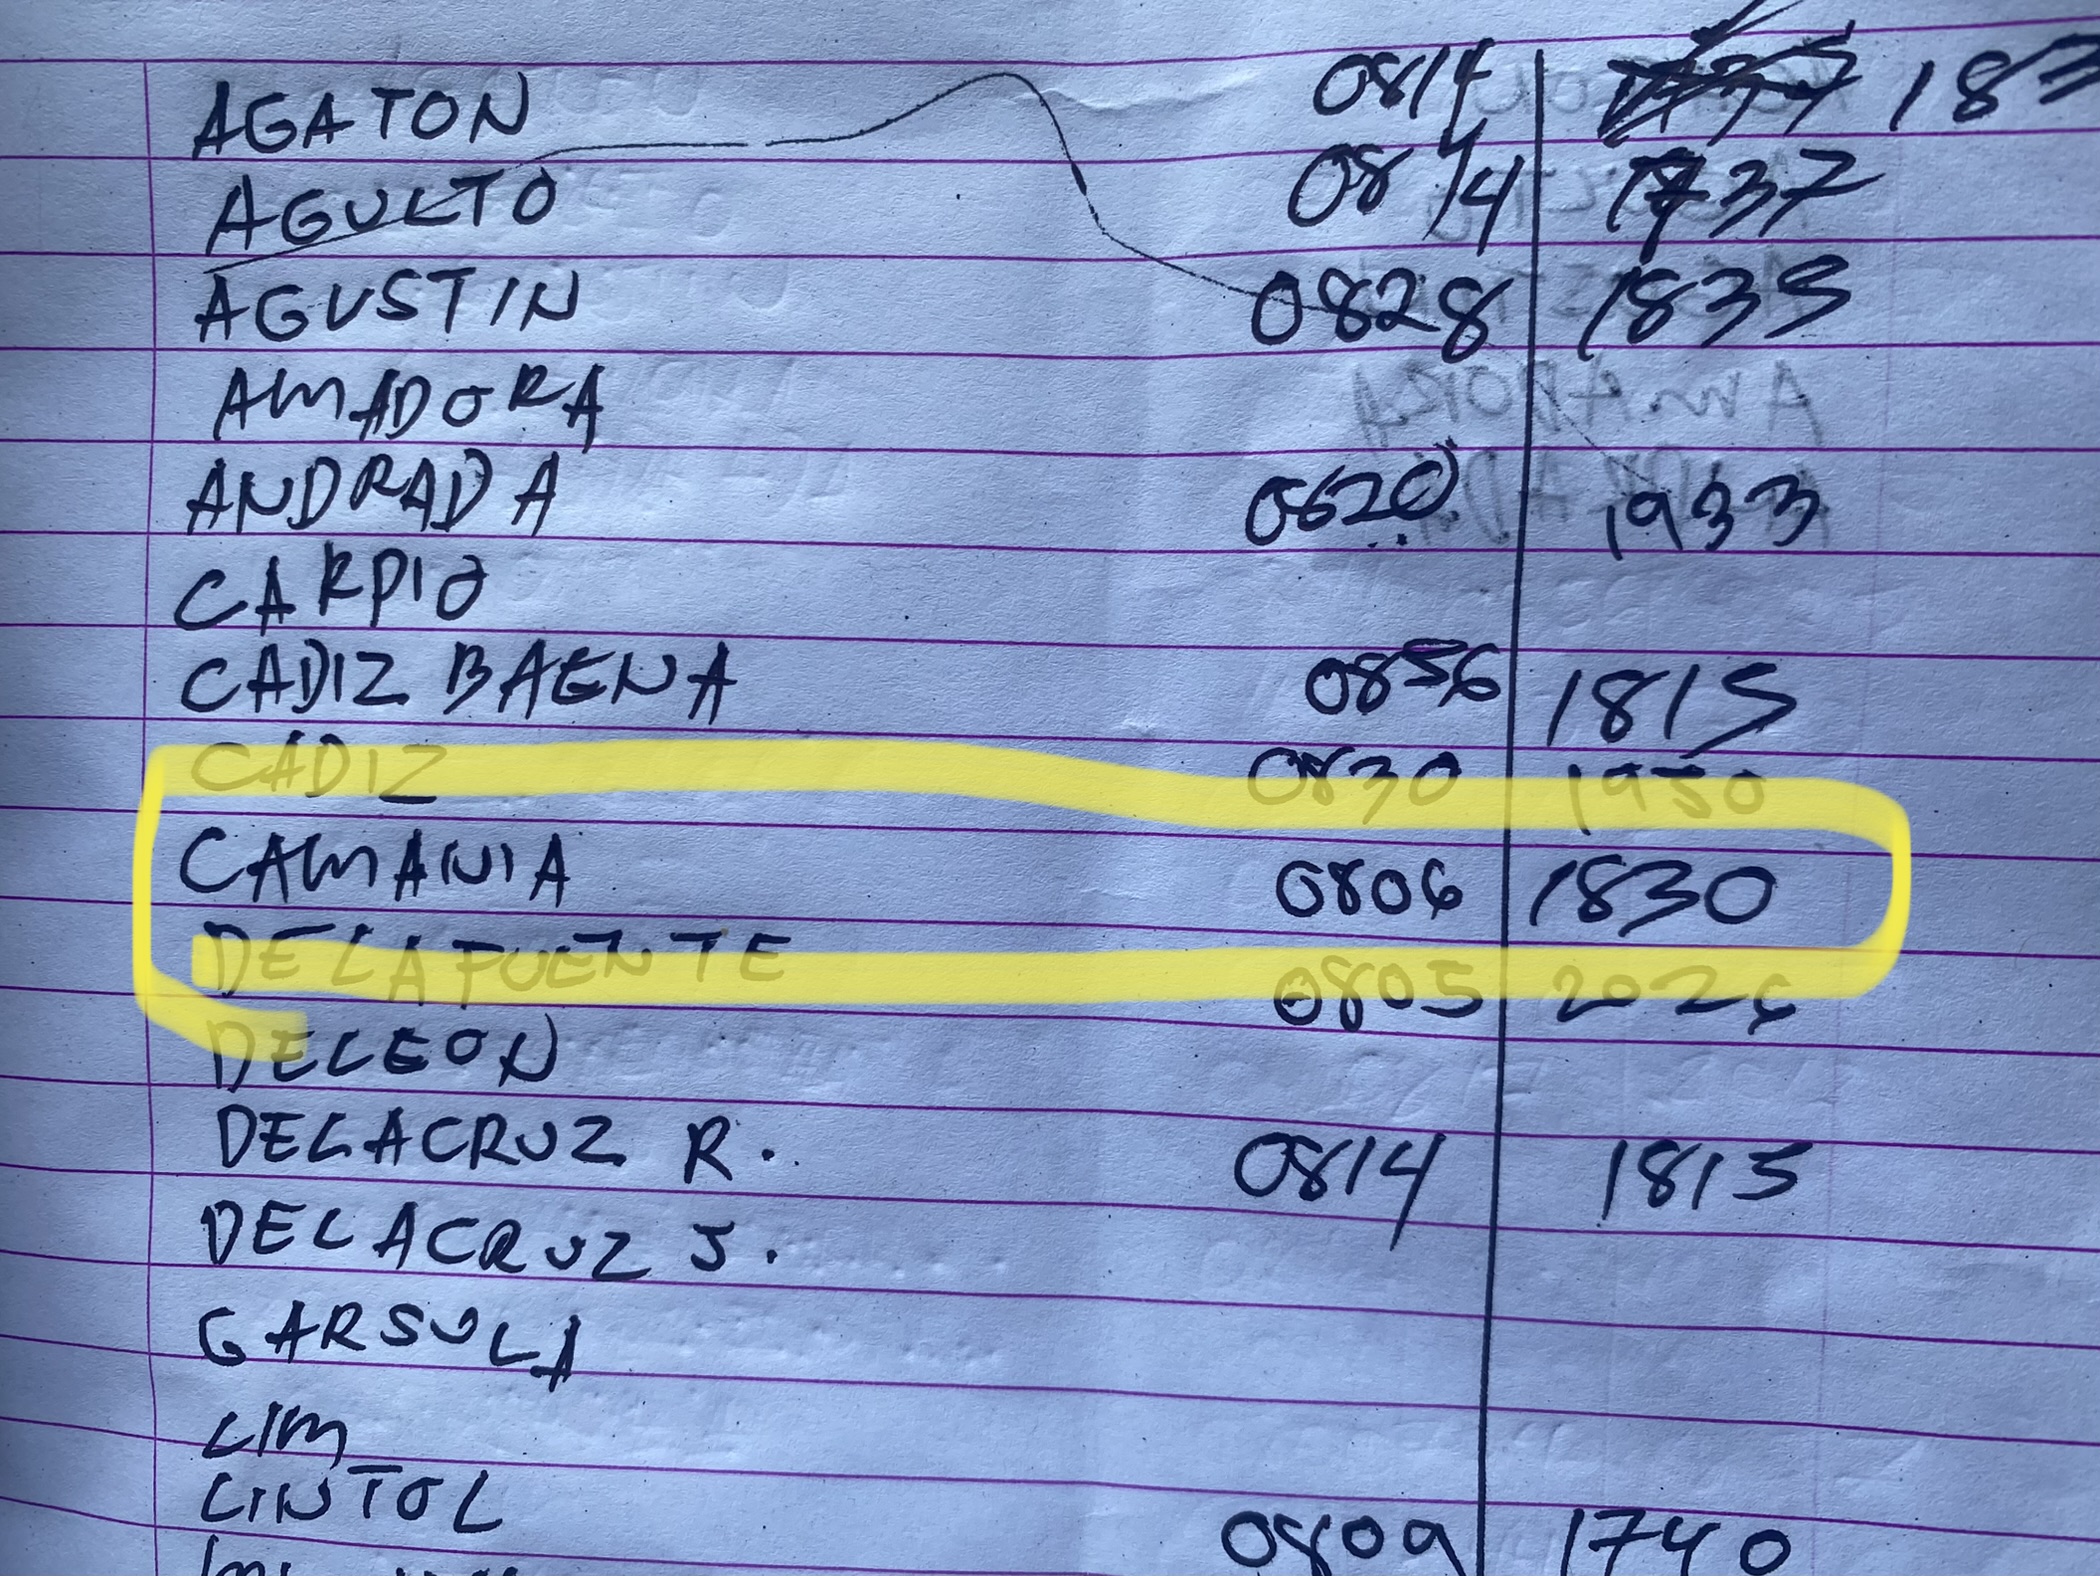 AGATON 0814 183
AGULTO 0814 1737
AGUSTIN 0828 1835
AMADORA
ANDRADA 0820 1933
CARPIO
CADIZ BAENA 0856 1815
CADIZ 0830 1950
CAMANIA 0806 1830
DELAFUENTE 0805 2026
DELEON
DELACRUZ R. 0814 1815
DELACRUZ J.
GARSULA
LIM
LINTOL 0809 1740